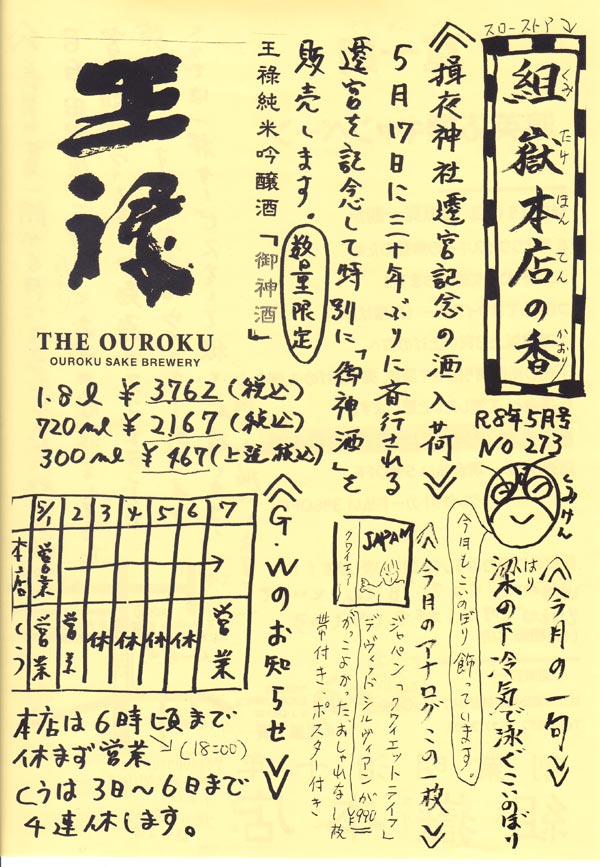 スローストア
組嶽本店の香
くみ たけ ほん てん かおり
R8年5月号
NO 273
くみけん
《揖夜神社遷宮記念の酒入荷》
5月17日に三十年ぶりに斎行される
遷宮を記念して特別に「御神酒」を
販売します。
数量限定
王祿純米吟醸酒「御神酒」
王祿
THE OUROKU
OUROKU SAKE BREWERY
1.8ℓ ¥3762(税込)
720mℓ ¥2167(税込)
300mℓ ¥467(上選税込)
《今月の一句》
はり
梁の下 冷気で泳ぐ こいのぼり
今月もこいのぼり飾っています。
《今月のアナログこの一枚》
JAPAN
クワイエア
ジャパン「クワイエットライフ」
デヴィッドシルヴィアンが
がっこよかったおしゃれな1枚
¥990
帯付き、ポスター付き
《G.Wのお知らせ》
5/1 2 3 4 5 6 7
本店 営業
くう 営業 営業 休 休 休 休 営業
本店は6時頃まで
休まず営業 (18:00)
くうは3日〜6日まで
4連休します。